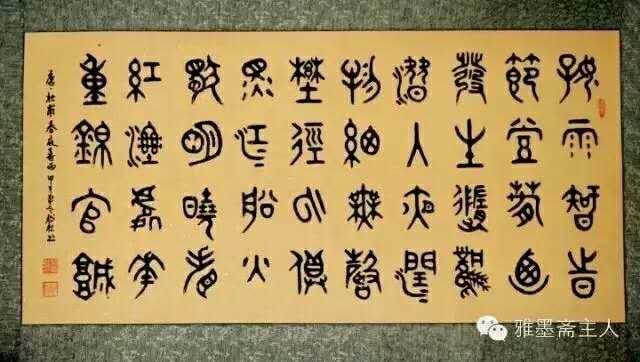 好雨知時
節當春乃
發生隨風
潛入夜潤
物細無聲
野徑雲俱
黑江船火
獨明曉看
紅濕處花
重錦官城
唐杜甫春夜喜雨甲午
雅墨斋主人